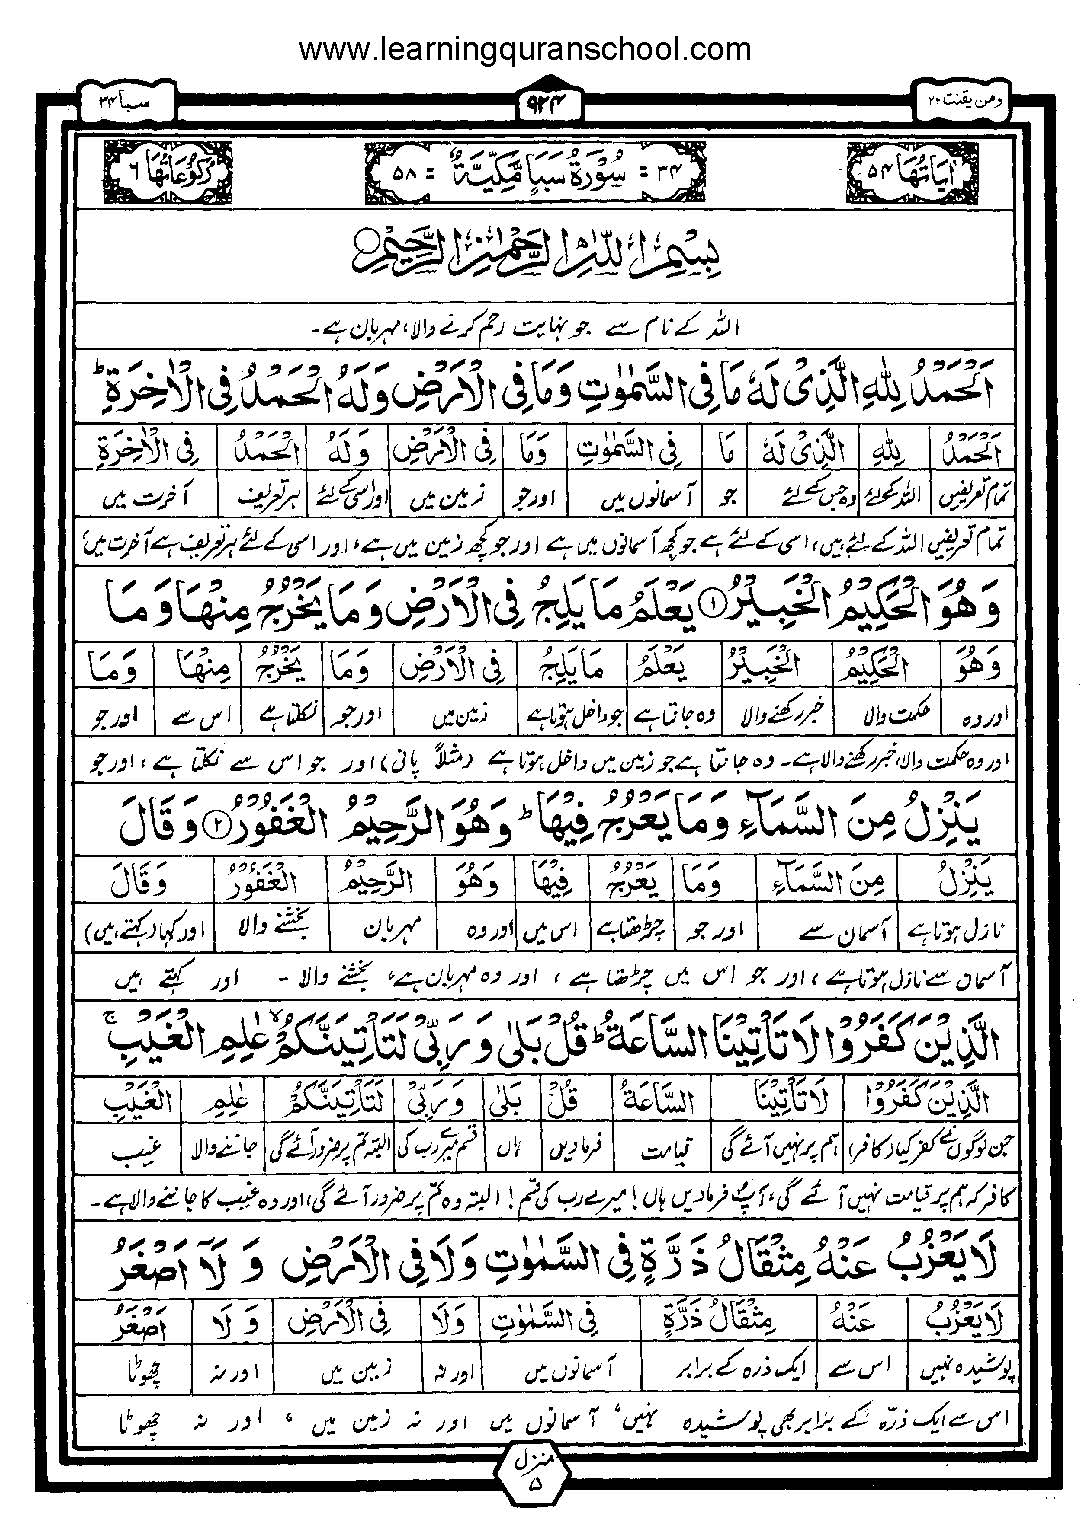 www.learningquranschool.com
ومن یقنت ۲۲
۹۲۴
سبأ ۳۴
اٰیَاتُهَا ۵۴
۳۴ = سُوْرَةُ سَبَاٍ مَّكِّیَّةٌ = ۵۸
رُكُوْعَاتُهَا ۶
بِسْمِ اللّٰهِ الرَّحْمٰنِ الرَّحِیْمِ
اللہ کے نام سے جو نہایت رحم کرنے والا، مہربان ہے۔
اَلْحَمْدُ لِلّٰهِ الَّذِیْ لَهٗ مَا فِی السَّمٰوٰتِ وَمَا فِی الْاَرْضِ وَلَهُ الْحَمْدُ فِی الْاٰخِرَةِ ؕ
اَلْحَمْدُ لِلّٰهِ الَّذِیْ لَهٗ مَا فِی السَّمٰوٰتِ وَمَا فِی الْاَرْضِ وَلَهُ الْحَمْدُ فِی الْاٰخِرَةِ
تمام تعریفیں اللہ کیلئے وہ جس کے لئے جو آسمانوں میں اور جو زمین میں اور اسی کے لئے ہر تعریف آخرت میں
تمام تعریفیں اللہ کے لئے ہیں، اسی کے لئے ہے جو کچھ آسمانوں میں ہے اور جو کچھ زمین میں ہے، اور اسی کے لئے ہر تعریف ہے آخرت میں،
وَهُوَ الْحَكِیْمُ الْخَبِیْرُ ۱ یَعْلَمُ مَا یَلِجُ فِی الْاَرْضِ وَمَا یَخْرُجُ مِنْهَا وَمَا
وَهُوَ الْحَكِیْمُ الْخَبِیْرُ یَعْلَمُ مَا یَلِجُ فِی الْاَرْضِ وَمَا یَخْرُجُ مِنْهَا وَمَا
اور وہ حکمت والا خبر رکھنے والا وہ جانتا ہے جو داخل ہوتا ہے زمین میں اور جو نکلتا ہے اس سے اور جو
اور وہ حکمت والا، خبر رکھنے والا ہے۔ وہ جانتا ہے جو زمین میں داخل ہوتا ہے (مثلاً پانی) اور جو اس سے نکلتا ہے، اور جو
یَنْزِلُ مِنَ السَّمَآءِ وَمَا یَعْرُجُ فِیْهَا ؕ وَهُوَ الرَّحِیْمُ الْغَفُوْرُ ۲ وَقَالَ
یَنْزِلُ مِنَ السَّمَآءِ وَمَا یَعْرُجُ فِیْهَا وَهُوَ الرَّحِیْمُ الْغَفُوْرُ وَقَالَ
نازل ہوتا ہے آسمان سے اور جو چڑھتا ہے اس میں اور وہ مہربان بخشنے والا اور کہا (کہتے ہیں)
آسمان سے نازل ہوتا ہے، اور جو اس میں چڑھتا ہے، اور وہ مہربان ہے، بخشنے والا ۔ اور کہتے ہیں
الَّذِیْنَ كَفَرُوْا لَا تَاْتِیْنَا السَّاعَةُ ؕ قُلْ بَلٰی وَرَبِّیْ لَتَاْتِیَنَّكُمْ ۙ عٰلِمِ الْغَیْبِ ۚ
الَّذِیْنَ كَفَرُوْا لَا تَاْتِیْنَا السَّاعَةُ قُلْ بَلٰی وَرَبِّیْ لَتَاْتِیَنَّكُمْ عٰلِمِ الْغَیْبِ
جن لوگوں نے کفر کیا (کافر) ہم پر نہیں آئے گی قیامت فرمادیں ہاں قسم میرے رب کی البتہ تم پر ضرور آئے گی جاننے والا غیب
کافر کہ ہم پر قیامت نہیں آئے گی، آپ فرمادیں ہاں! میرے رب کی قسم! البتہ وہ تم پر ضرور آئے گی، اور وہ غیب کا جاننے والا ہے۔
لَا یَعْزُبُ عَنْهُ مِثْقَالُ ذَرَّةٍ فِی السَّمٰوٰتِ وَلَا فِی الْاَرْضِ وَلَاۤ اَصْغَرُ
لَا یَعْزُبُ عَنْهُ مِثْقَالُ ذَرَّةٍ فِی السَّمٰوٰتِ وَلَا فِی الْاَرْضِ وَلَا اَصْغَرُ
پوشیدہ نہیں اس سے ایک ذرہ کے برابر آسمانوں میں اور نہ زمین میں اور نہ چھوٹا
اس سے ایک ذرّہ کے برابر بھی پوشیدہ نہیں، آسمانوں میں اور نہ زمین میں ، اور نہ چھوٹا
منزل
۵